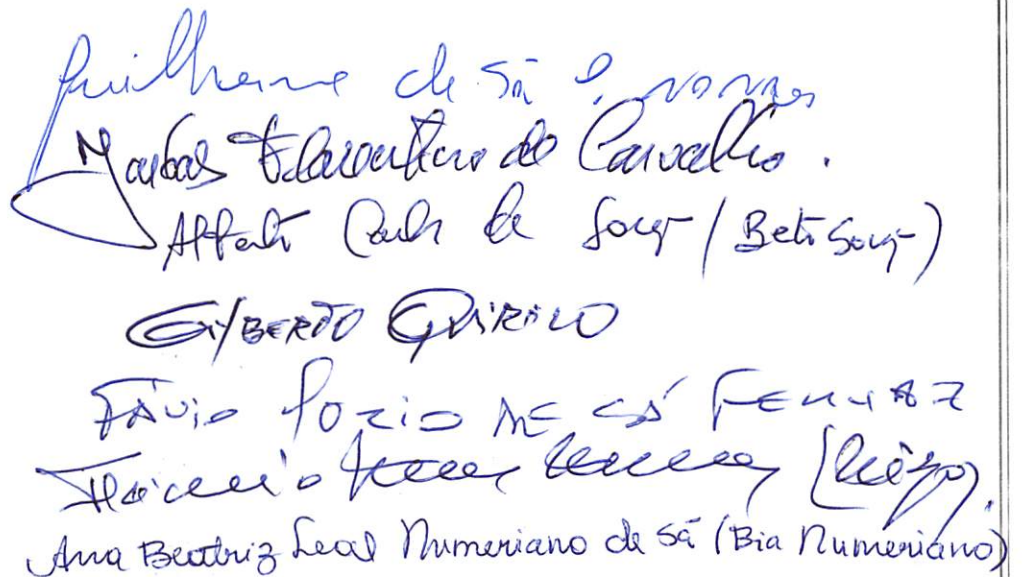 Guilherme de Sá e Novaes
Jarbas Florentino de Carvalho.
Alberto Carlos de Souza (Beto Souza)
GILBERTO QUIRINO
FÁVIO PORZIO DE SÁ FERRAZ
(Diêgo).
Ana Beatriz Leal Numeriano de Sá (Bia Numeriano)